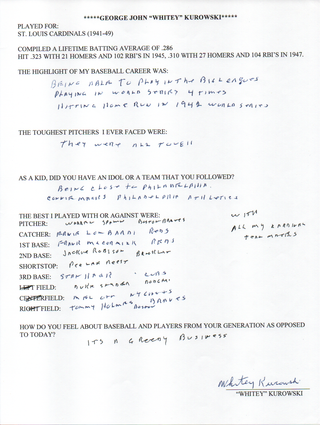 *****GEORGE JOHN "WHITEY" KUROWSKI*****
PLAYED FOR:
ST. LOUIS CARDINALS (1941-49)
COMPILED A LIFETIME BATTING AVERAGE OF .286
HIT .323 WITH 21 HOMERS AND 102 RBI'S IN 1945, .310 WITH 27 HOMERS AND 104 RBI'S IN 1947.
THE HIGHLIGHT OF MY BASEBALL CAREER WAS:
BEING ABLE TO PLAY IN THE BIG LEAGUES
PLAYING IN WORLD SERIES 4 TIMES
HITTING HOME RUN IN 1942 WORLD SERIES
THE TOUGHEST PITCHERS I EVER FACED WERE:
THEY WERE ALL TOUGH
AS A KID, DID YOU HAVE AN IDOL OR A TEAM THAT YOU FOLLOWED?
BEING CLOSE TO PHILADELPHIA
CONNIE MACK'S PHILADELPHIA ATHLETICS
THE BEST I PLAYED WITH OR AGAINST WERE:
PITCHER: WARREN SPAHN BOSTON BRAVES
CATCHER: LOMBARDI REDS
1ST BASE: FRANK MCCORMICK REDS
2ND BASE: JACKIE ROBINSON BROOKLYN
SHORTSTOP: PEE WEE REESE
3RD BASE: STAN HACK CUBS
LEFT FIELD:
CENTERFIELD: NY GIANTS
RIGHT FIELD: TOMMY HOLMES BOSTON BRAVES
WITH
ALL MY CARDINAL
TEAM MATES
HOW DO YOU FEEL ABOUT BASEBALL AND PLAYERS FROM YOUR GENERATION AS OPPOSED
TO TODAY?
ITS A GREEDY BUSINESS
Whitey Kurowski
"WHITEY" KUROWSKI